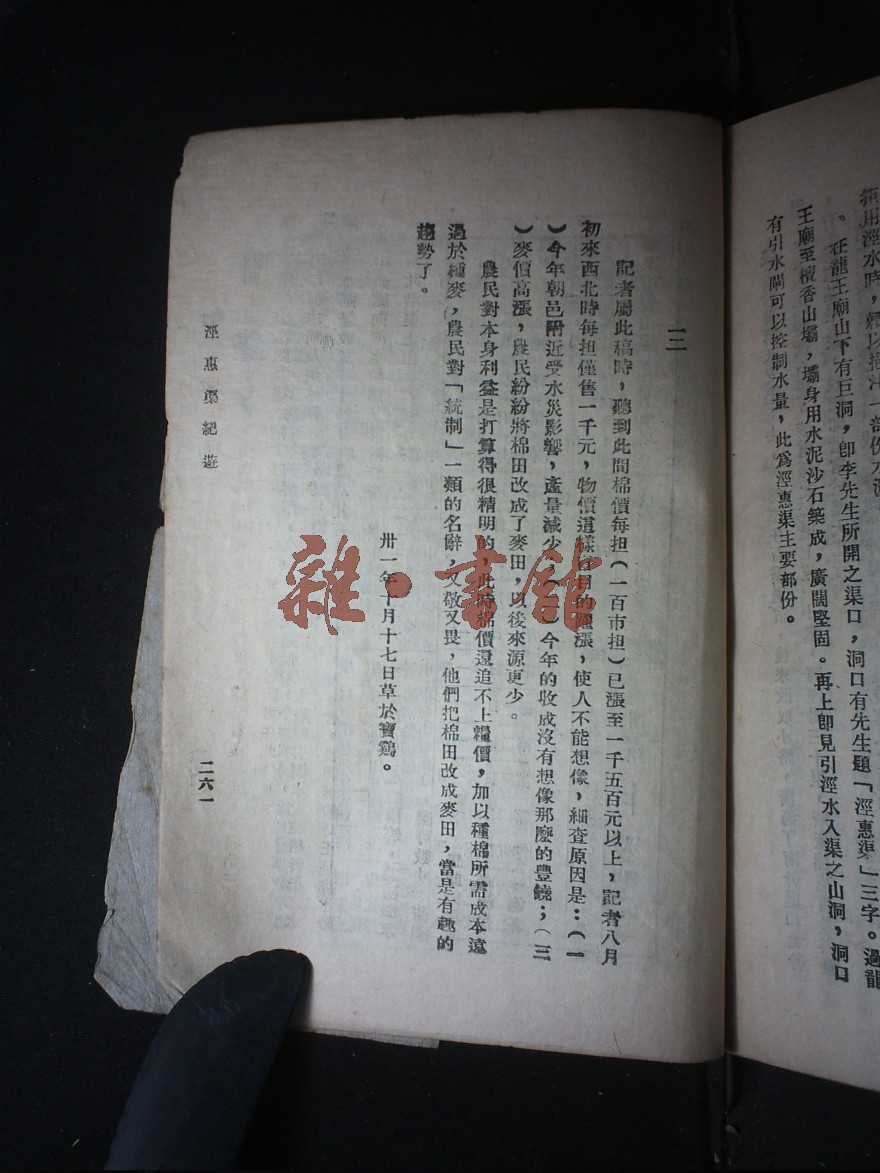 有引水閘可以控制水量，此爲涇惠渠主要部份。
王廟至檀香山壩，壩身用水泥沙石築成，廣闊堅固。再上卽見引涇水入渠之山洞，洞口
。在龍王廟山下有巨洞，卽李先生所開之渠口，洞口有先生題「涇惠渠」三字。過龍
用涇水時，
一部份水
三
記者屬此稿時，聽到此間棉價每担（一百市担）已漲至一千五百元以上，記者八月
初來西北時每担僅售一千元，物價這樣的漲，使人不能想像，細查原因是：（一
）今年朝邑附近受水災影響，產量減少；（二）今年的收成沒有想像那麽的豐饒；（三
）麥價高漲，農民紛紛將棉田改成了麥田，以後來源更少。
農民對本身利益是打算得很精明的，此時棉價還追不上糧價，加以種棉所需成本遠
過於種麥，農民對「統制」一類的名辭，又敬又畏，他們把棉田改成麥田，當是有趣的
趨勢了。
卅一年十月十七日草於寶鷄。
涇惠渠紀遊
二六一
雜·書館